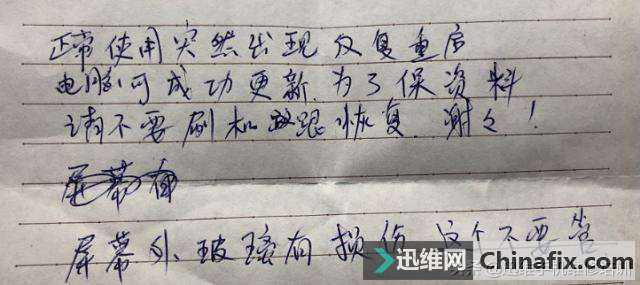 正常使用突然出现反复重启
电脑可成功更新.为了保资料
请不要刷机或跟恢复.谢谢!
屏幕外玻璃有损伤这个不要管
迅维网
Chinafix.com